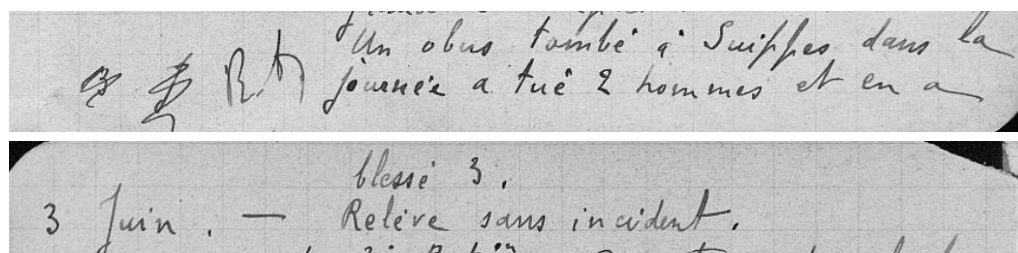 Un obus tombé à Suippes dans la
journée a tué 2 hommes et en a
blessé 3.
3 Juin. — Relève sans incident.